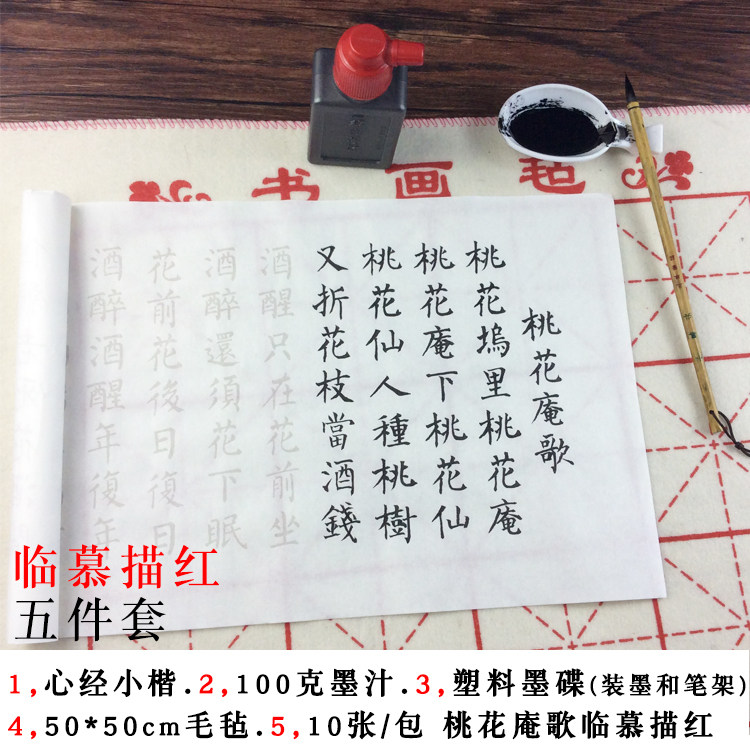 书画毡
桃花庵歌
桃花塢里桃花庵
桃花庵下桃花仙
桃花仙人種桃樹
又折花枝當酒錢
酒醒只在花前坐
酒醉還須花下眠
花前花後日復日
酒醉酒醒年復年
临慕描红
五件套
1,心经小楷.2,100克墨汁.3,塑料墨碟(装墨和笔架)
4,50*50cm毛毡.5,10张/包 桃花庵歌临慕描红